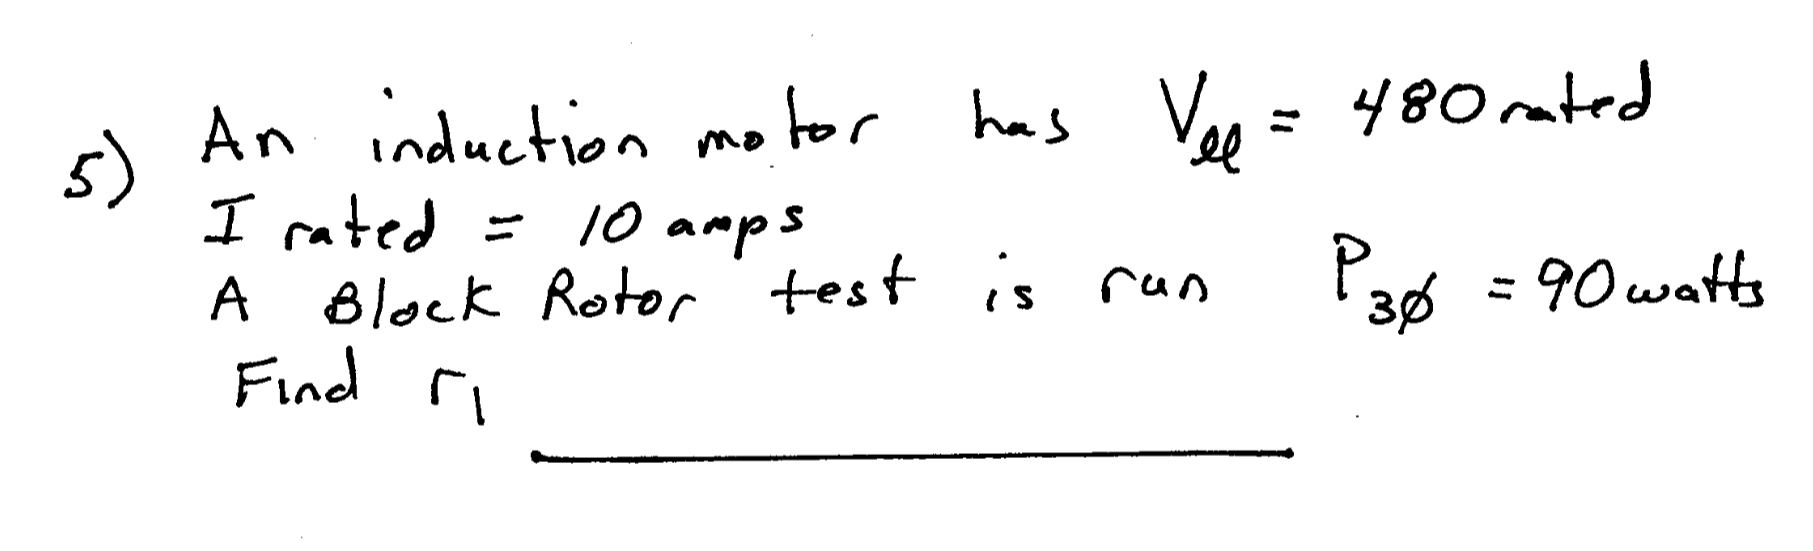 5) An induction motor has Vll = 480 rated
I rated = 10 amps
A Block Rotor test is run P3ø = 90 watts
Find r1